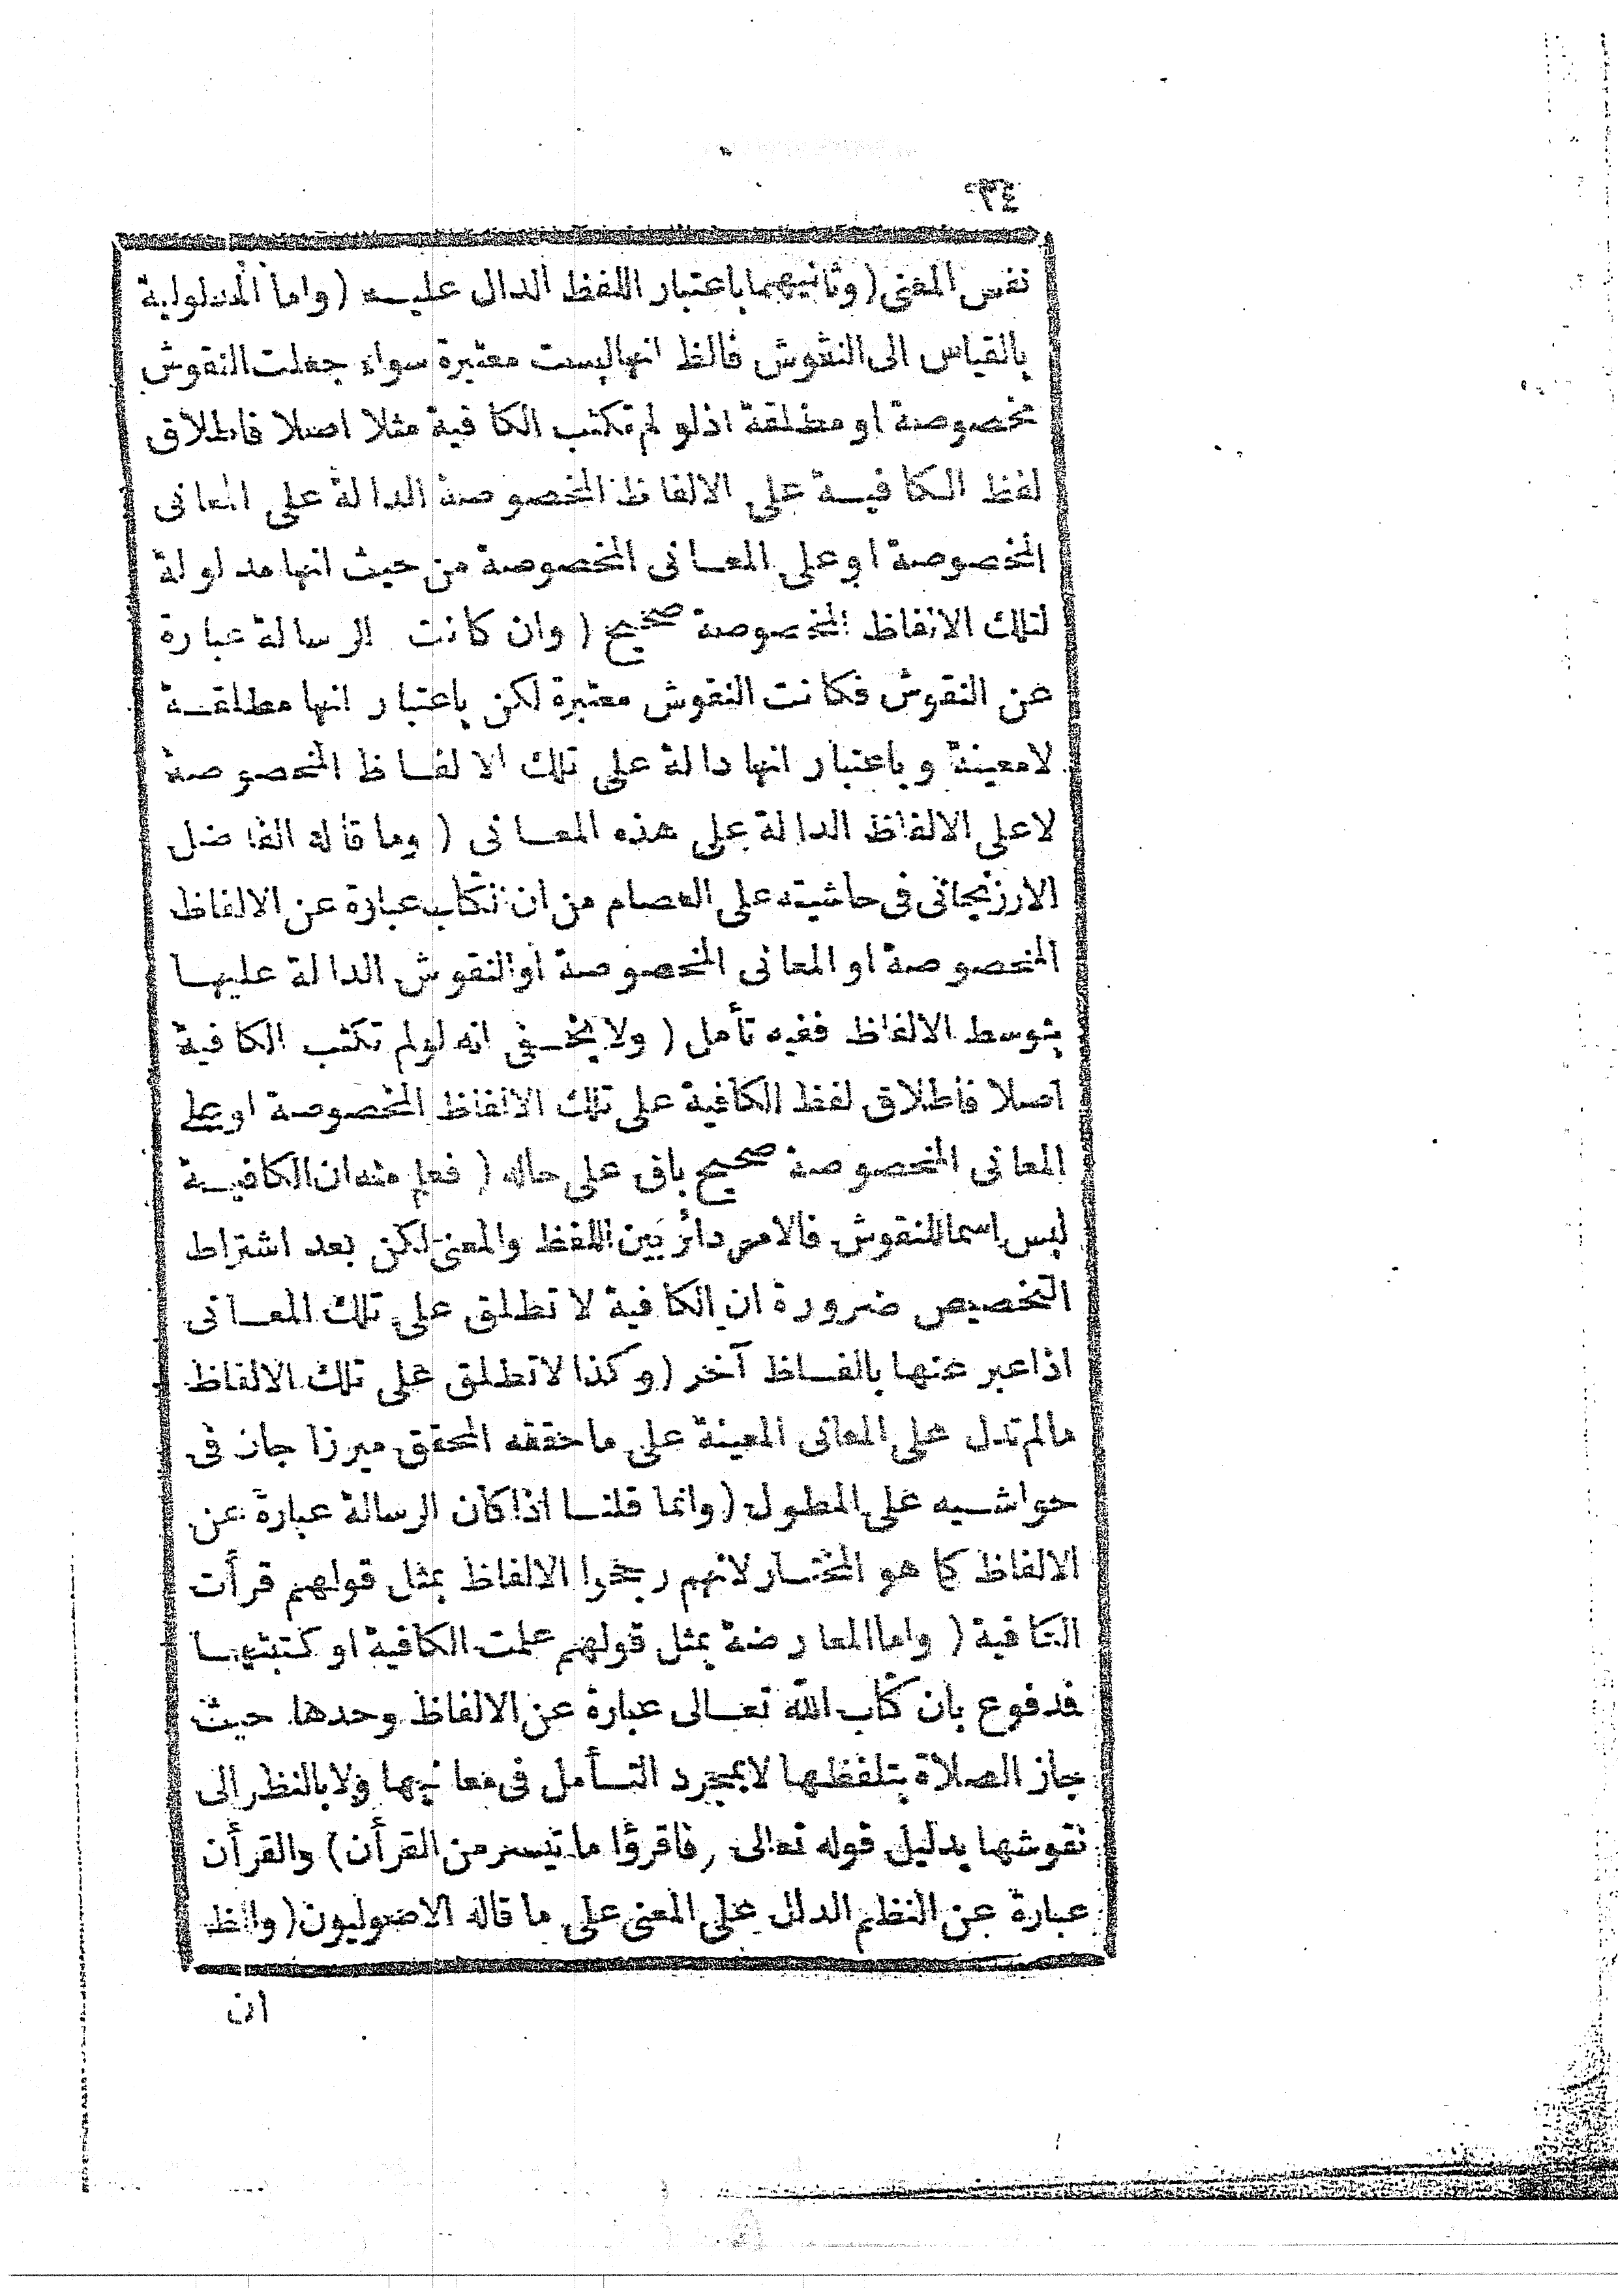 ٣٤
نفس المعنى (وثانيهما باعتبار اللفظ الدال عليه (واما المدلولية
بالقياس الى النقوش فالظ انها ليست معتبرة سواء جعلت النقوش
مخصوصة او مطلقة اذلو لم تكتب الكافية مثلا اصلا فاطلاق
لفظ الكافية على الالفاظ المخصوصة الدالة على المعانى
المخصوصة او على المعانى المخصوصة من حيث انها مدلولة
لتلك الالفاظ المخصوصة صحيح (وان كانت الرسالة عبارة
عن النقوش فكانت النقوش معتبرة لكن باعتبار انها مطلقة
لامعينة وباعتبار انها دالة على تلك الالفاظ المخصوصة
لاعلى الالفاظ الدالة على هذه المعانى (وما قاله الفاضل
الارزنجانى فى حاشيته على العصام من ان الكتاب عبارة عن الالفاظ
المخصوصة او المعانى المخصوصة او النقوش الدالة عليها
بتوسط الالفاظ ففيه تأمل (ولا يخفى انه لولم تكتب الكافية
اصلا فاطلاق لفظ الكافية على تلك الالفاظ المخصوصة او على
المعانى المخصوصة صحيح باق على حاله (فعلم منه ان الكافية
ليس اسما للنقوش فالامر دائر بين اللفظ والمعنى لكن بعد اشتراط
التخصيص ضرورة ان الكافية لا تطلق على تلك المعانى
اذا عبر عنها بالفاظ آخر (وكذا لا تطلق على تلك الالفاظ
مالم تدل على المعانى المعينة على ما حققه المحقق ميرزا جان فى
حواشيه على المطول (وانما قلنا اذا كان الرسالة عبارة عن
الالفاظ كما هو المختار لانهم رجحوا الالفاظ بمثل قولهم قرأت
الكافية (واما المعارضة بمثل قولهم علمت الكافية او كتبتها
فمدفوع بان كتاب الله تعالى عبارة عن الالفاظ وحدها حيث
جاز الصلاة بتلفظها لا بمجرد التأمل فى معانيها ولا بالنظر الى
نقوشها بدليل قوله تعالى (فاقرؤا ما تيسر من القرأن) والقرأن
عبارة عن النظم الدال على المعنى على ما قاله الاصوليون (والظ
ان